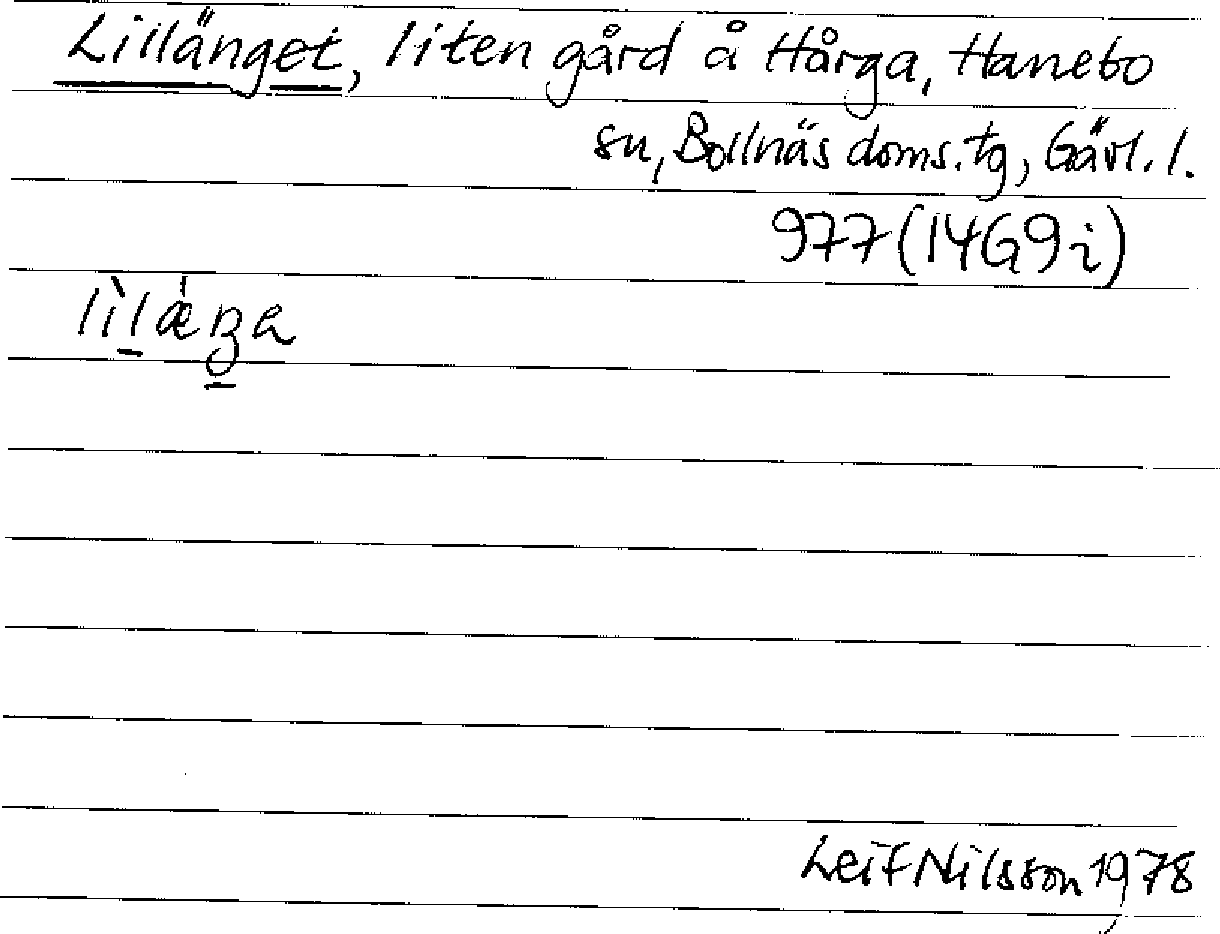 Lillänget, liten gård å Hårga, Hanebo
sn, Bollnäs doms. tg, Gävl. l.
977 (14G9i)
Leif Nilsson 1978